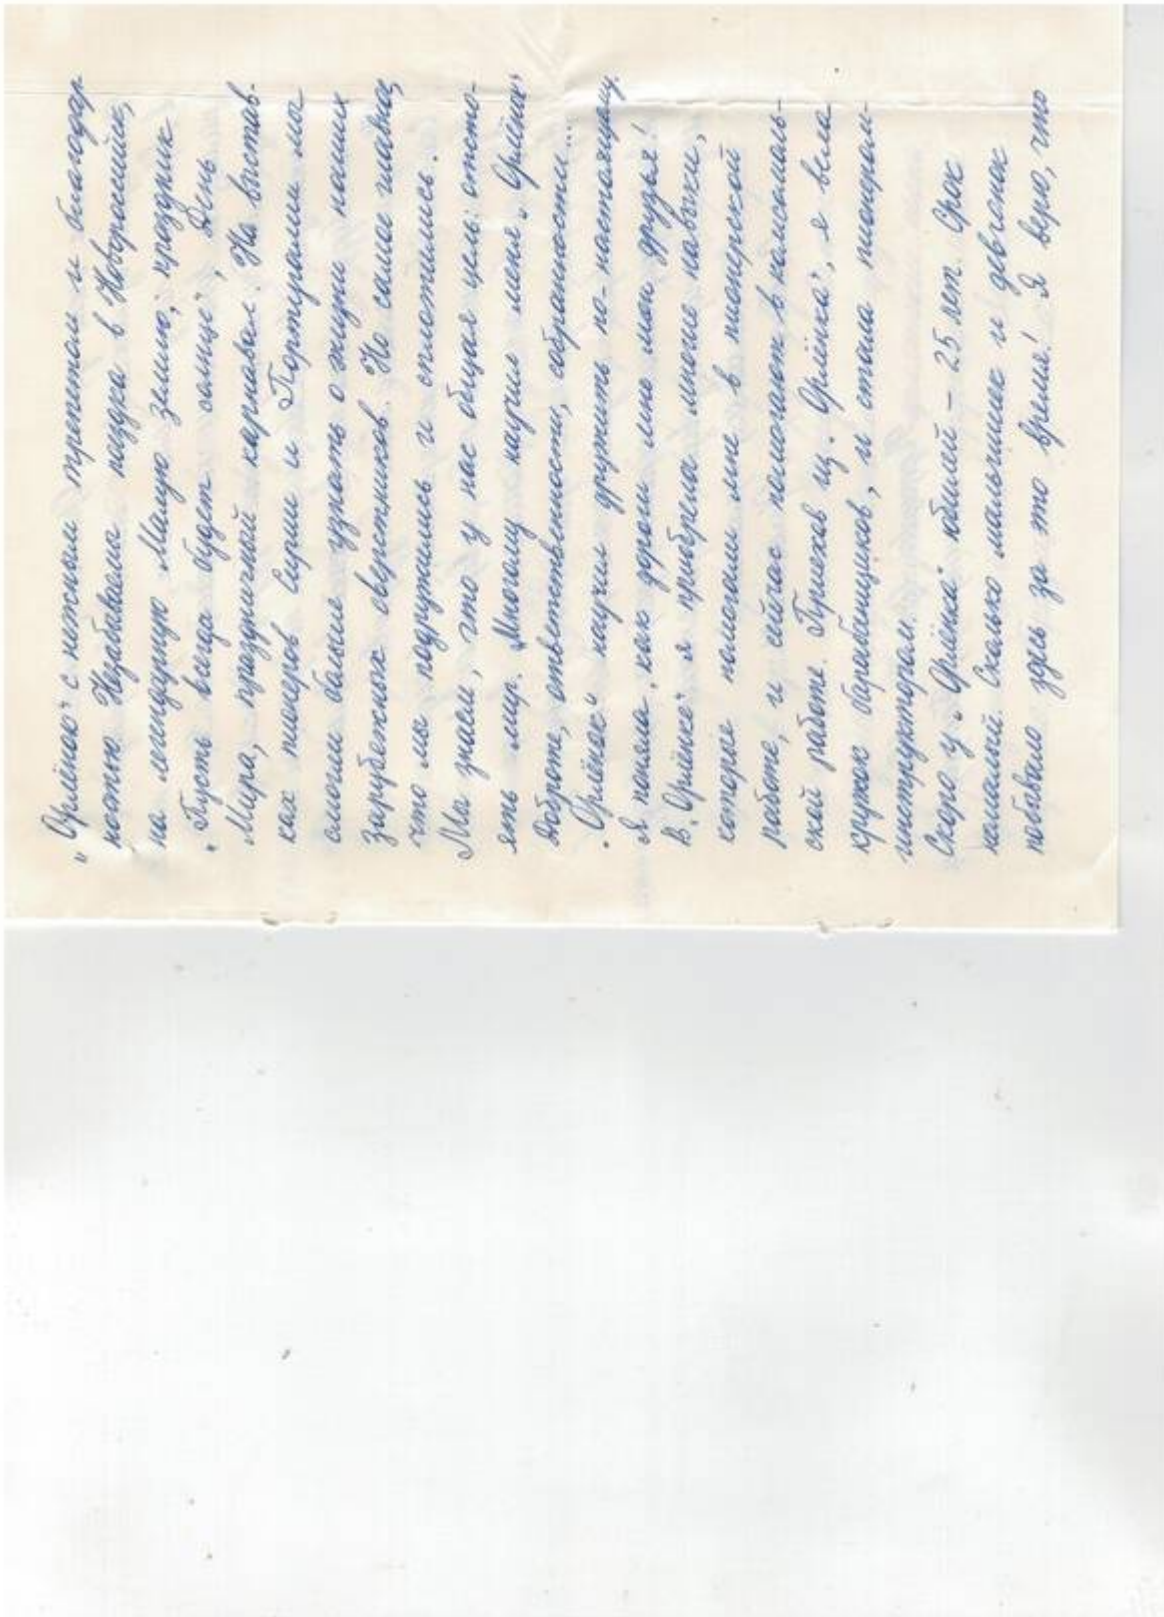 „Орлёнок" с нежным трепетом и благодар
ностью. Незабываема поездка в Новороссийск,
на легендарную Малую землю, праздник
„Пусть всегда будет солнце", День
Мира, праздничный карнавал. На выстав-
ках пионеров Сирии и Португалии мы
смогли больше узнать о жизни наших
зарубежных сверстников. Но самое главное,
что мы подружились и сплотились.
Мы знаем, что у нас общая цель: отсто-
ять мир. Многому научил меня „Орлёнок":
доброте, ответственности, собранности...
„Орлёнок" научил дружить по-настоящему.
Я поняла, как дороги мне мои друзья!
В „Орлёнке" я приобрела многие навыки,
которые помогали мне в пионерской
работе, и сейчас помогают в комсомоль-
ской работе. Приехав из „Орлёнка", я вела
кружок барабанщиков, и стала пионером-
инструктором.
Скоро у „Орлёнка" юбилей - 25 лет. Срок
немалый. Сколько мальчишек и девчонок
побывало здесь за это время! Я верю, что